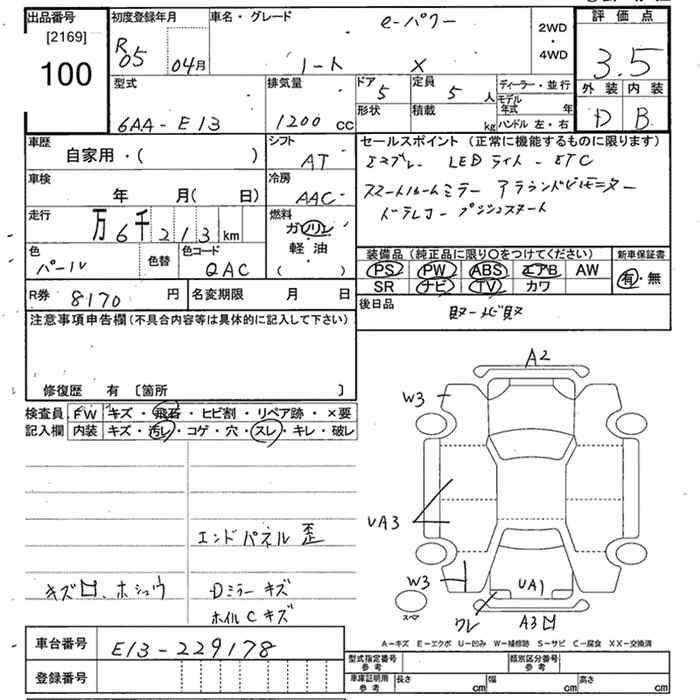 出品番号 初度登録年月 車名・グレード e-パワー 2WD・4WD 評価点
[2169] R05 04月 ノート X 3.5
100 型式 排気量 ドア 5 定員 5人 ディーラー・並行 外装 内装
6AA-E13 1200 cc 形状 積載 kg モデル年式 年 D B
ハンドル 左・右
車歴 シフト セールスポイント (正常に機能するものに限ります)
自家用・( ) AT エマブレ LEDライト ETC
車検 冷房 スマートルームミラー アラウンドビューモニター
年 月( 日) AAC ドラレコ プッシュスタート
走行 燃料
万6千213km ガソリン
軽・油 装備品 (純正品に限り○をつけてください) 新車保証書
色 色替 色コード ( ) PS PW ABS エアB AW 有・無
パール QAC SR ナビ TV カワ
R券 8170 円 名変期限 月 日 後日品
注意事項申告欄(不具合内容等は具体的に記入して下さい) 取 ナビ取
修復歴 有 〔箇所 〕
検査員 FW キズ・飛石・ヒビ割・リペア跡・×要
記入欄 内装 キズ・汚レ・コゲ・穴・スレ・キレ・破レ
A2
W3
UA3
エンドパネル 歪
キズ凹、ホシュウ Dミラー キズ
ホイルC キズ
W3 UA1
スペア ワレ A3凹
A-キズ E-エクボ U-凹み W-補修跡 S-サビ C-腐食 XX-交換済
車台番号 E13-229178
登録番号
型式指定番号 参考 類別区分番号 参考
車庫証明用 参考 長さ cm 幅 cm 高さ cm